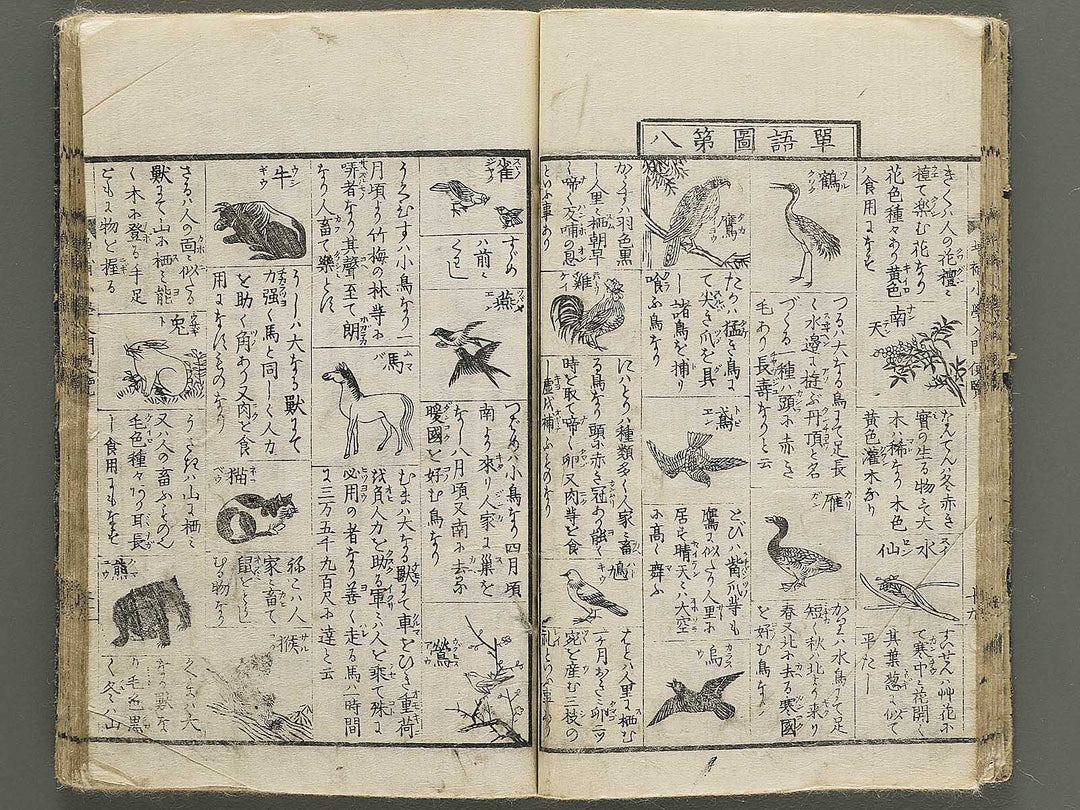 單語圖第八
きくハ人の花檀ニ
植て楽む花なり
花色種々あり黄色
ハ食用になる
南天
なんてんハ冬赤き
實の生る物そ大
木ハ稀なり木色
黄色灌木なり
水仙
すゐせんハ艸花に
て寒中ニ花開く
其葉葱に似て
平たし
鶴
つるハ大なる鳥にて足長
く水邊に遊ぶ丹頂と名
づくる一種ハ頭に赤き
毛あり長壽なりと云
雁
かりハ水鳥にて足
短し秋ハ北より來り
春又北に去る寒國
を好む鳥なり
鷹
たかハ猛き鳥に
て尖き爪を具
し諸鳥を捕り
喰ふ鳥なり
鳶
とびハ觜爪等も
鷹に似たり人里に
居る晴天ニハ大空
に高く舞ふ
烏
からすハ羽色黒
し人里ニ栖朝早
く啼く友哺の恩
といふ事あり
雞
にハとりハ種類多く人家ニ畜
る鳥なり頭に赤き冠あり能く
時を取て啼く卵又肉等を食
し虚伐補ふものなり
鳩
はとハ人里に栖む
一ケ月おきに卵二ツ
宛を産む三枝の
礼といふ事あり
雀
すゞめ
ハ前ニ
くわし
燕
つばめハ小鳥なり四月頃
南より來り人家に巣を
なし八月頃又南に去る
暖國を好む鳥なり
鶯
うぐひすハ小鳥なり一二
月頃より竹梅の林等に
哢者なり其聲至て朗
なり人畜て樂とす
馬
むまハ大なる獸にて車をひき重荷
を負人力を助る軍ニハ人を乘て殊に
必用の者なり善く走る馬ハ一時間
に三万五千九百尺に達と云
牛
うしハ大なる獸にて
力强く馬と同しく人力
を助く角あり又肉を食
用になすものなり
猫
ねこハ人
家ニ畜て
鼠をとらし
むる物なり
猴
さるハ人の面ニ似たる
獸にて山に栖ミ能
く木に登る手足
ともに物を握る
兎
うさぎハ山に栖ミ
又ハ人の畜ふものハ
毛色種々あり耳長
し食用にもなる
熊
くまハ大
なる獸な
り毛色黒
く冬ハ山